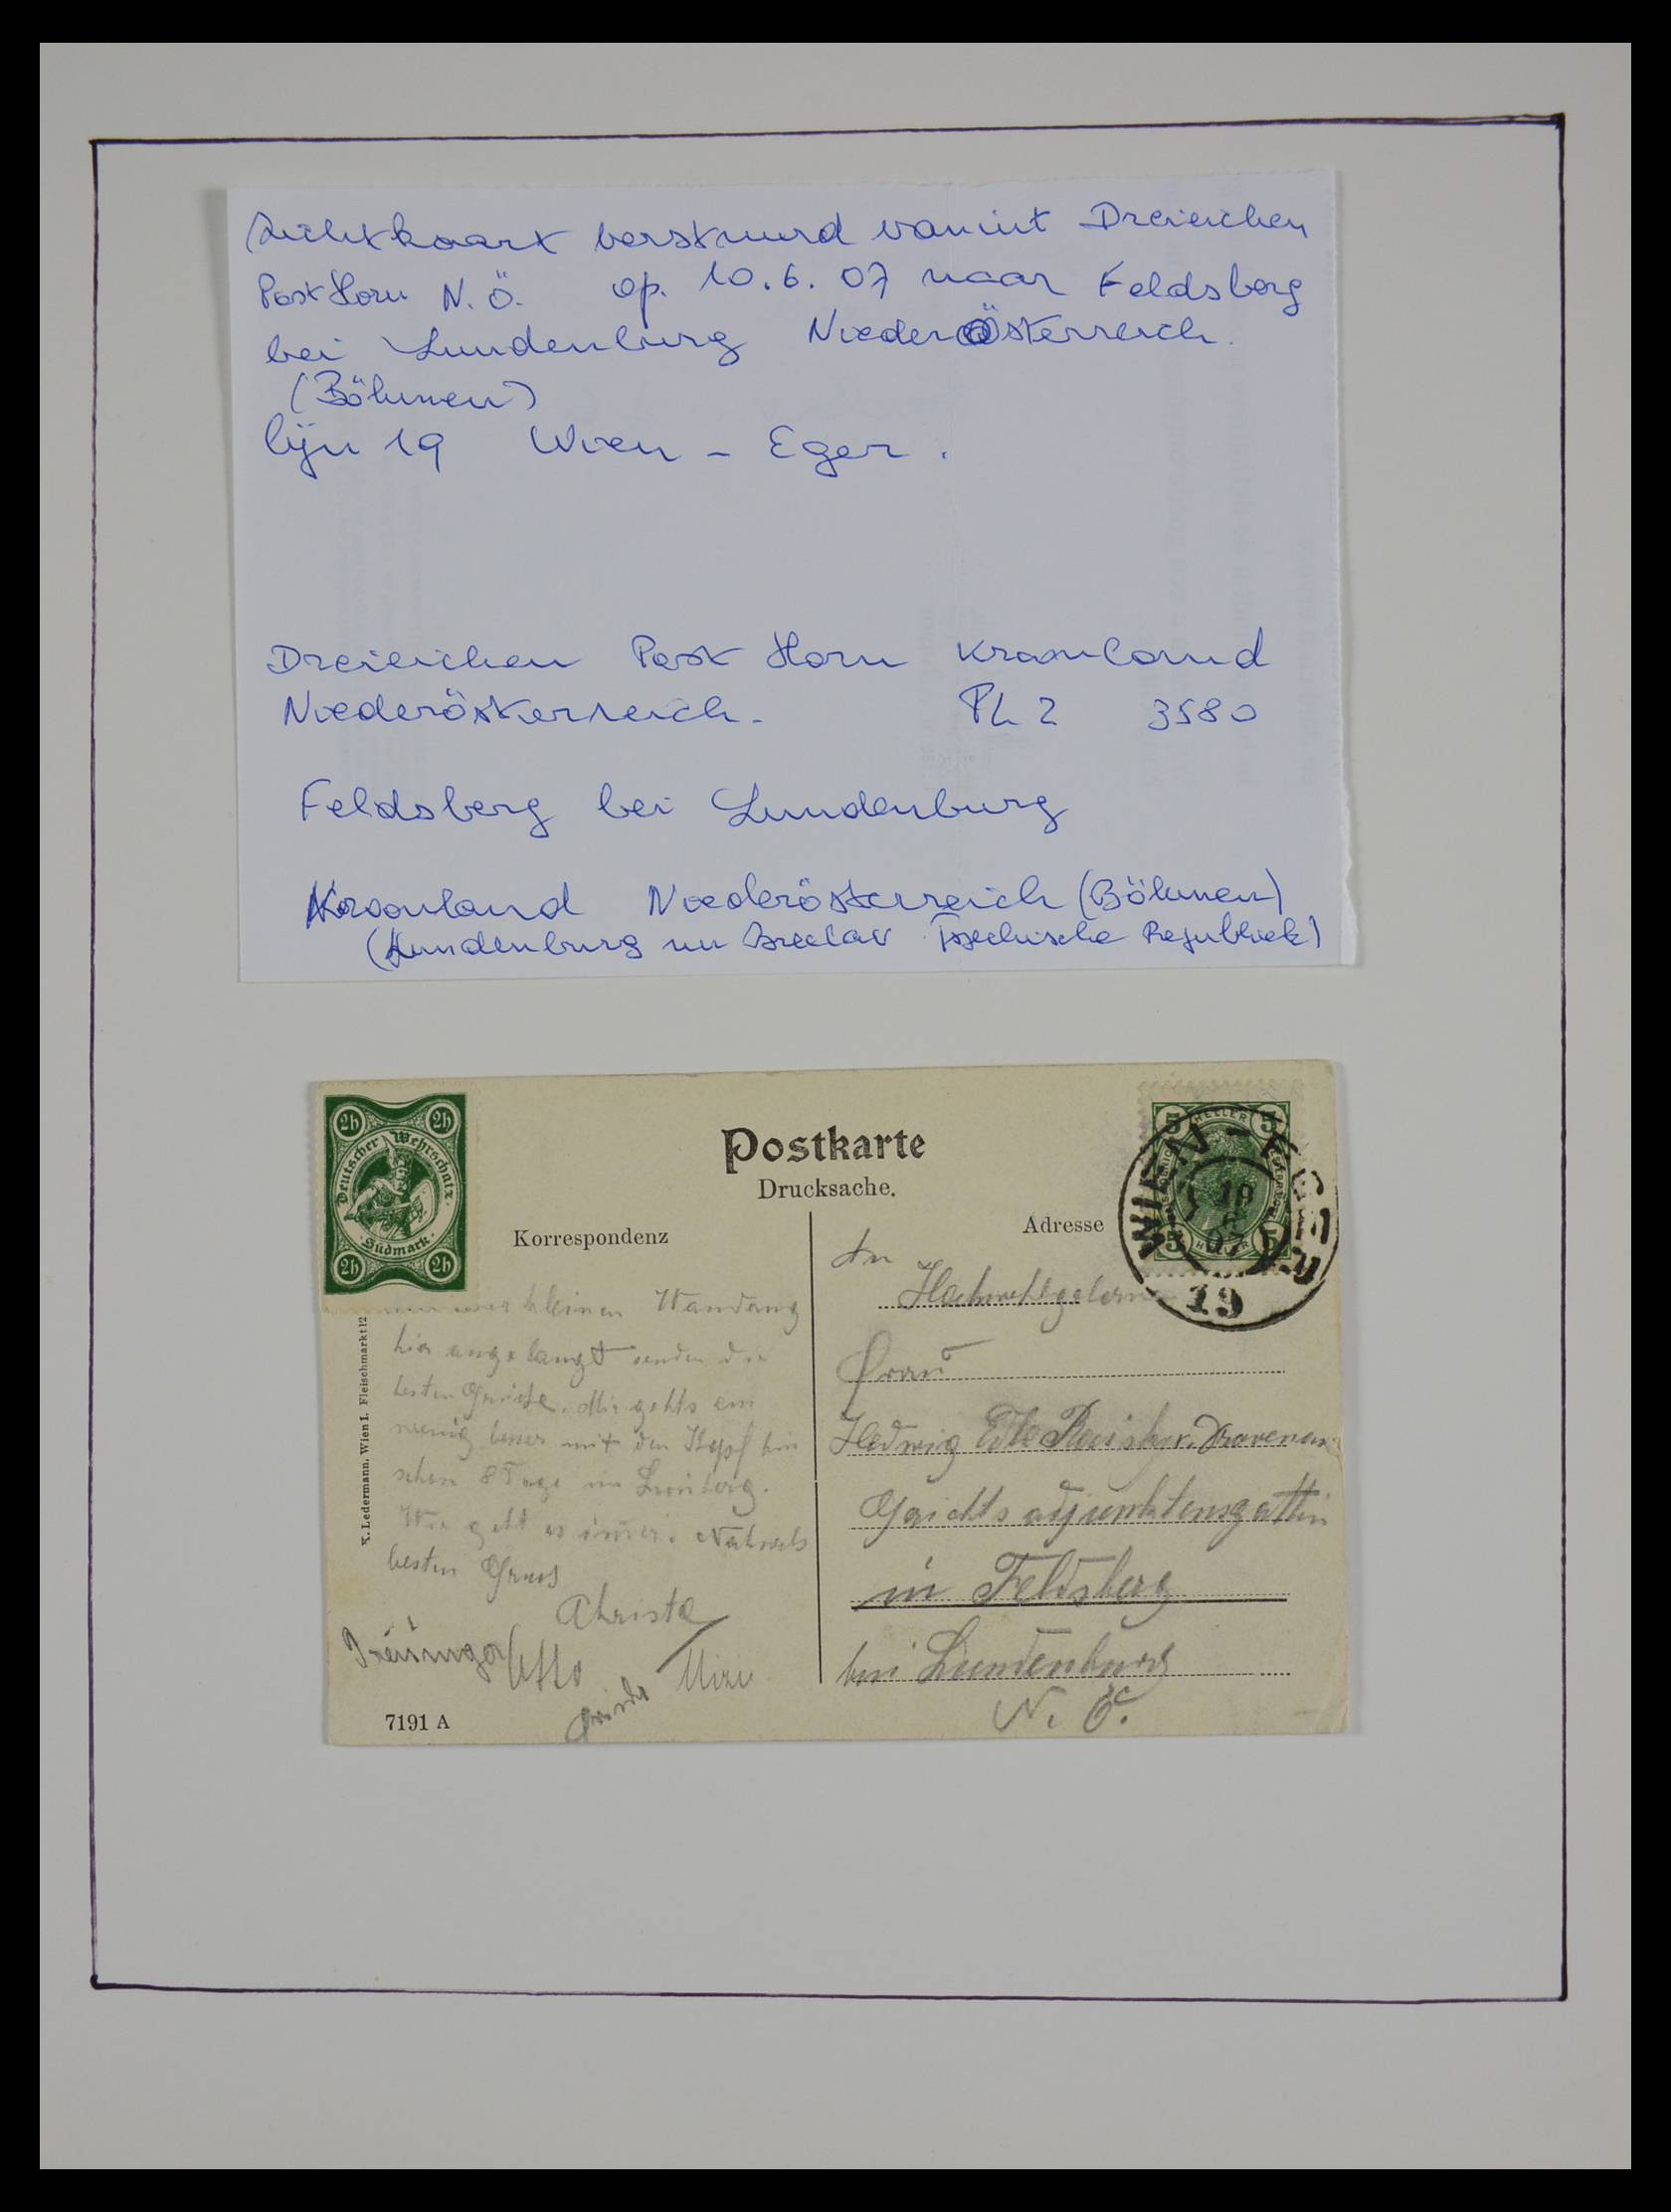 Zichtkaart verstuurd vanuit Dreieichen
Post Horn N.Ö. op. 10.6.07 naar Feldsberg
bei Lundenburg Niederösterreich.
(Böhmen)
lijn 19 Wien - Eger.
Dreieichen Post Horn Kroonland
Niederösterreich. PL 2 3580
Feldsberg bei Lundenburg
Kroonland Niederösterreich (Böhmen)
(Lundenburg nu Breclav Tsjechische Republiek)
2h 2h
Deutscher Wehrschatz
Südmark.
2h 2h
Postkarte
Drucksache.
Korrespondenz
kleinen
hier angelangt senden die
besten Grüße. Mir gehts ein
wenig besser mit den Kopf bin
schon 8 Tage in
Wie geht es immer.
besten Gruss
Christa
Otto
Mizzi
7191 A
K. Ledermann, Wien I. Fleischmarkt 12
Adresse
5 HELLER 5
5 HELLER 5
WIEN - EGER
10
6
07
19
An
Hochwohlgeboren
Frau
Hedwig Edle
Gerichtsadjunktensgattin
in Feldsberg
bei Lundenburg
N. Ö.